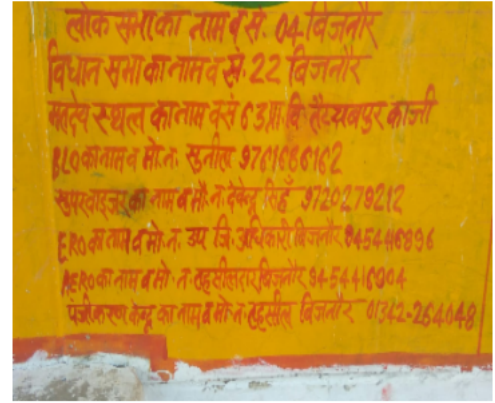 लोक सभा का नाम व सं. 04 बिजनौर
विधान सभा का नाम व सं. 22 बिजनौर
मतदेय स्थल का नाम व सं 63 प्रा. वि. तैय्यबपुर काजी
BLO का नाम व मो. न. सुनील 9761686162
सुपरवाइजर का नाम व मो. न. देवेन्द्र सिंह 9720279212
ERO का नाम व मो. न. उप जि. अधिकारी बिजनौर
AERO का नाम व मो. न. तहसीलदार बिजनौर
पंजीकरण केन्द्र का नाम व मो. न. तहसील बिजनौर 01342-264048